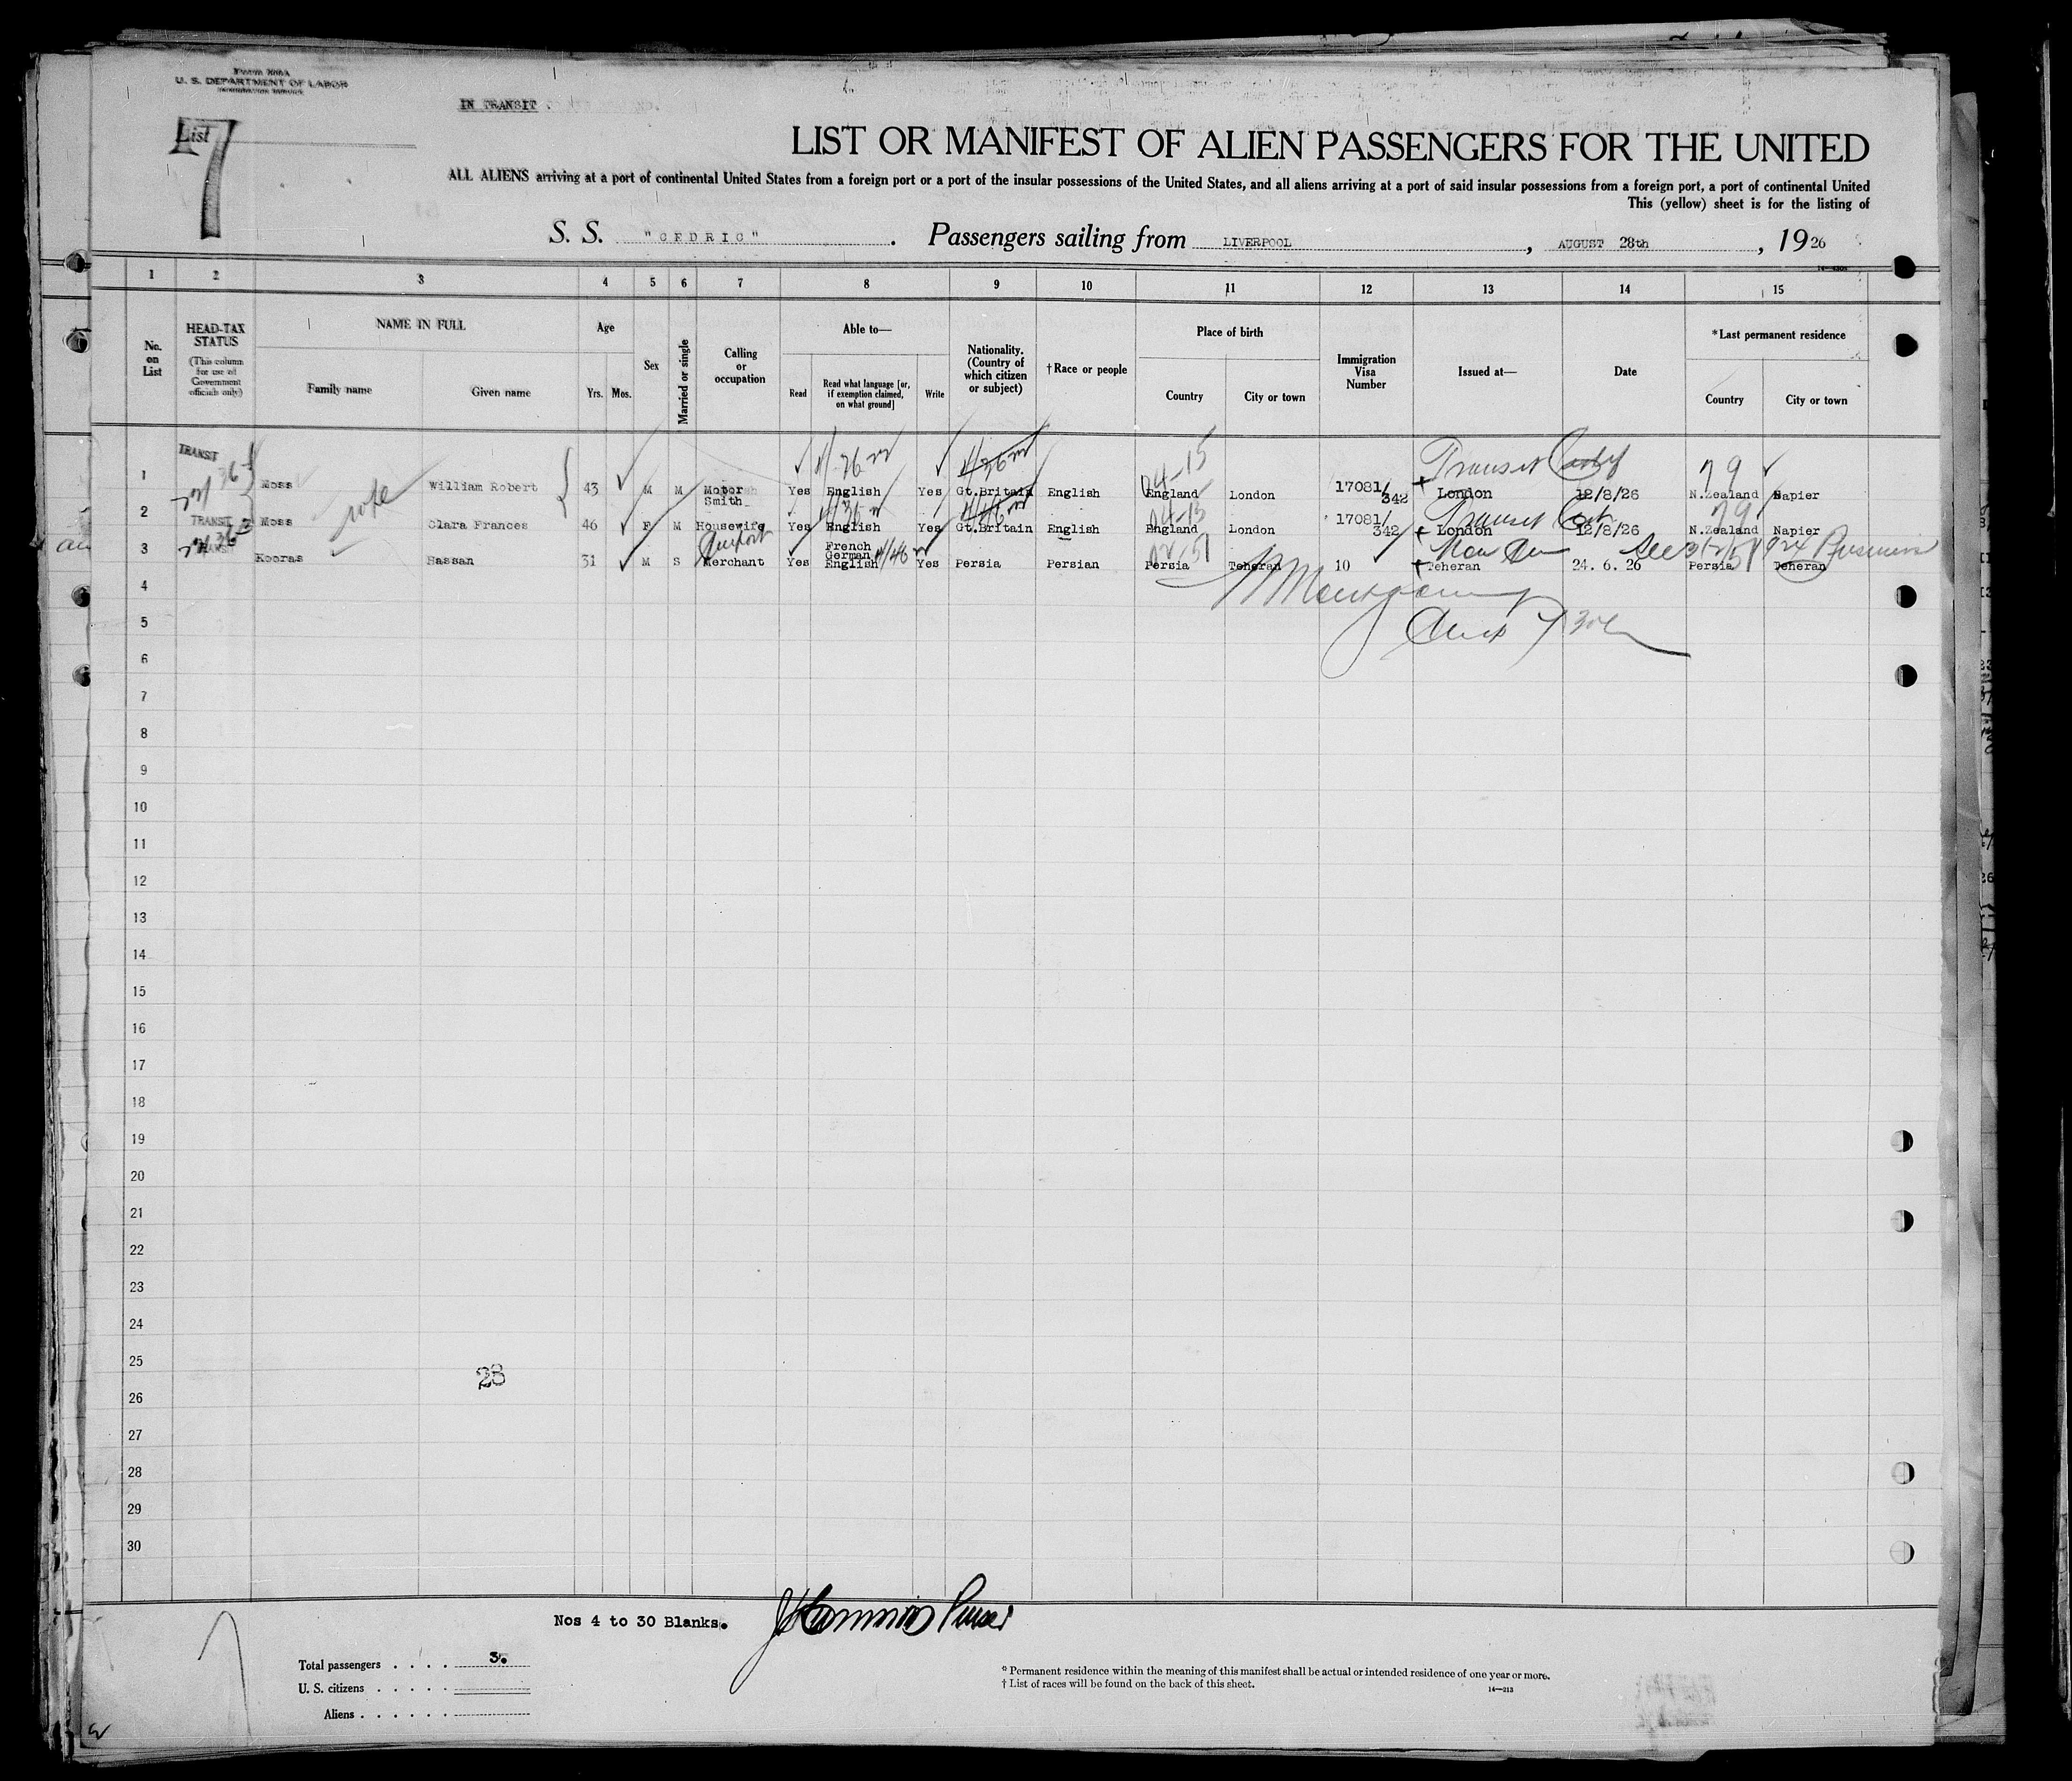 Form 500A
U. S. DEPARTMENT OF LABOR
IMMIGRATION SERVICE
IN TRANSIT
List 7
LIST OR MANIFEST OF ALIEN PASSENGERS FOR THE UNITED
ALL ALIENS arriving at a port of continental United States from a foreign port or a port of the insular possessions of the United States, and all aliens arriving at a port of said insular possessions from a foreign port, a port of continental United
This (yellow) sheet is for the listing of
S. S. "CEDRIC". Passengers sailing from LIVERPOOL, AUGUST 28th, 1926
1 2 3 4 5 6 7 8 9 10 11 12 13 14 15
No. on List
HEAD-TAX STATUS (This column for use of Government officials only)
NAME IN FULL
Family name Given name
Age
Yrs. Mos.
Sex
Married or single
Calling or occupation
Able to—
Read
Read what language [or, if exemption claimed, on what ground]
Write
Nationality. (Country of which citizen or subject)
†Race or people
Place of birth
Country City or town
Immigration Visa Number
Issued at—
Date
*Last permanent residence
Country City or town
TRANSIT Transit 79
1 Moss William Robert 43 M M Motor Smith Yes English Yes Gt.Britain English England London 17081/342 London 12/8/26 N.Zealand Napier
TRANSIT Transit 79
2 Moss Clara Frances 46 F M Housewife Yes English Yes Gt.Britain English England London 17081/342 London 12/8/26 N.Zealand Napier
note
3 Kooras Hassan 31 M S Merchant Yes French German English Yes Persia Persian Persia Teheran 10 Teheran 24. 6. 26 Persia Teheran
4
5
6
7
8
9
10
11
12
13
14
15
16
17
18
19
20
21
22
23
24
25
28
26
27
28
29
30
Nos 4 to 30 Blanks. Purser
Total passengers . . . . 3.
U. S. citizens . . . . .
Aliens . . . . . .
* Permanent residence within the meaning of this manifest shall be actual or intended residence of one year or more.
† List of races will be found on the back of this sheet.
14—213